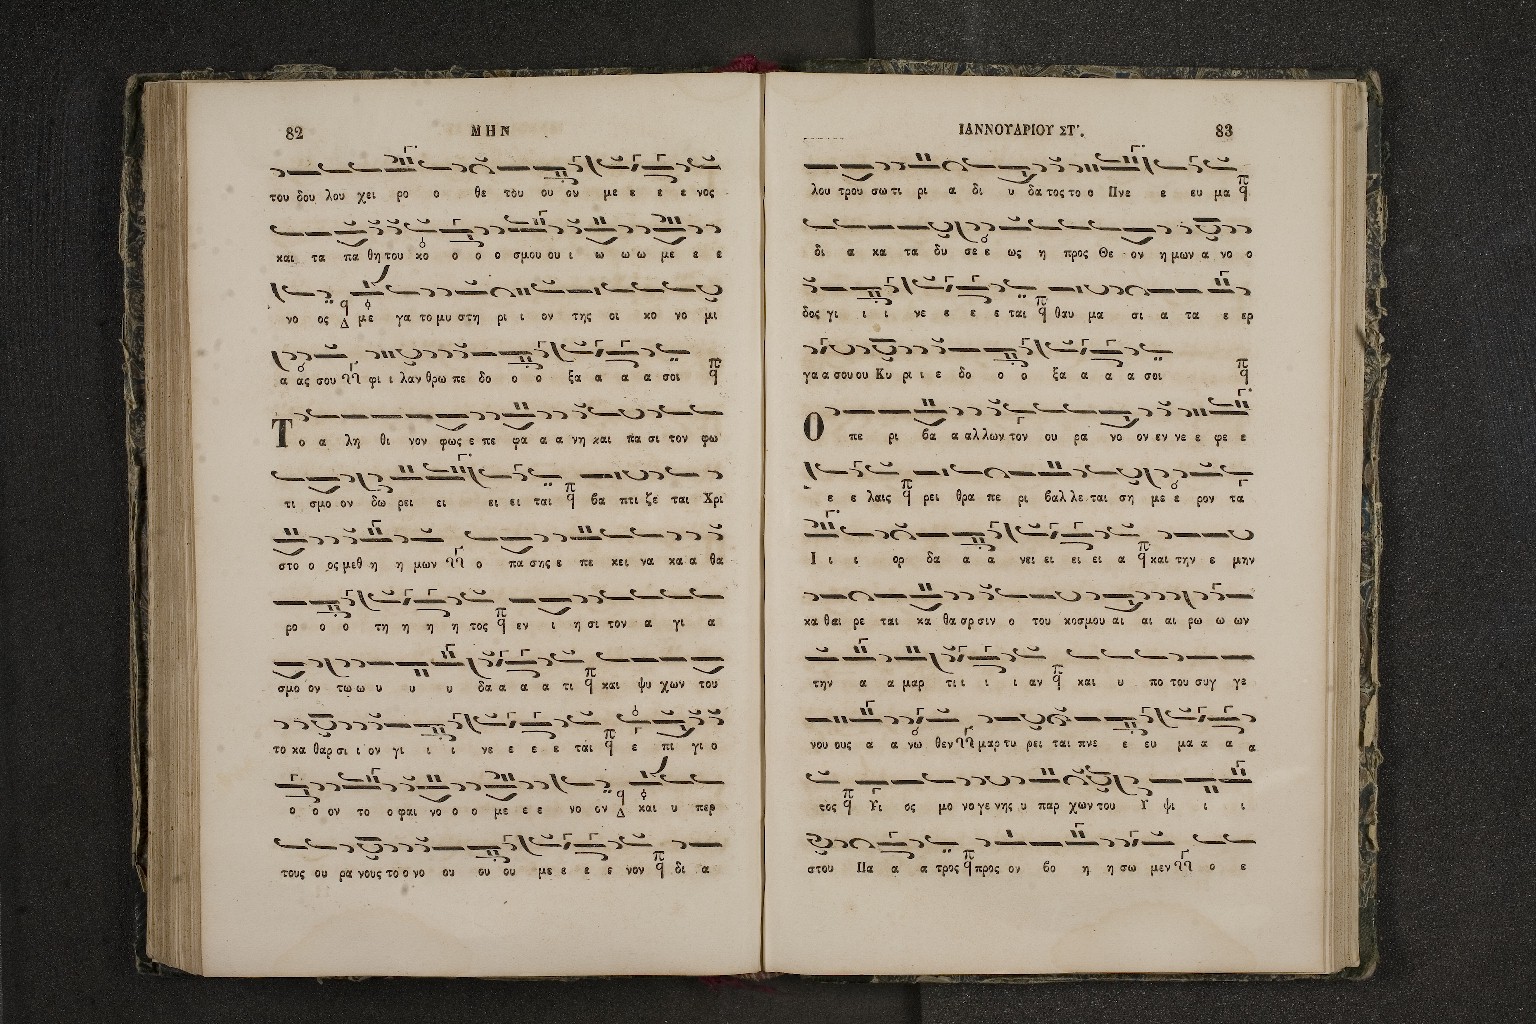 82 ΜΗΝ
του δου λου χει ρο ο θε του ου ου με ε ε ε νος
και τα πα θη του κο ο ο ο σμου ου ι ω ω ω με ε ε
νο ος Δ με γα το μυ στη ρι ι ον της οι κο νο μι
α ας σου φι ι λαν θρω πε δο ο ο ξα α α α σοι
Το α λη θι νον φως ε πε φα α α νη και πα σι τον φω
τι σμο ον δω ρει ει ει ει ται βα πτι ζε ται Χρι
στο ο ος μεθ η η μων ο πα σης ε πε κει να κα α θα
ρο ο ο τη η η η τος εν ι η σι τον α γι α
σμο ον τω ω υ υ υ δα α α α τι και ψυ χων του
το κα θαρ σι ι ον γι ι ι νε ε ε ε ται ε πι γι ο
ο ο ον το ο φαι νο ο ο με ε ε νο ον Δ και υ περ
τους ου ρα νους το ο νο ου ου ου με ε ε ε νον δι α
ΙΑΝΝΟΥΑΡΙΟΥ ΣΤ'. 83
λου τρου σω τι ρι α δι υ δα τος το ο Πνε ε ευ μα
δι α κα τα δυ σε ε ως η προς Θε ον η μων α νο ο
δος γι ι ι νε ε ε ε ται θαυ μα σι α τα ε ερ
γα α σου ου Κυ ρι ι ε δο ο ο ξα α α α σοι
Ο πε ρι βα α αλ λων τον ου ρα νο ον εν νε ε φε ε
ε ε λαις ρει θρα πε ρι βαλ λε ται ση με ε ρον τα
Ι ι ι ορ δα α α νει ει ει ει α και την ε μην
κα θαι ρε ται κα θα αρ σιν ο του κοσμου αι αι αι ρω ω ων
την α α μαρ τι ι ι ι αν και υ πο του συγ γε
νου ους α α νω θεν μαρ τυ ρει ται πνε ε ευ μα α α α
τος Υι ος μο νο γε νης υ παρ χων του Υ ψι ι ι
στου Πα α α τρος προς ον βο η η σω μεν ο ε